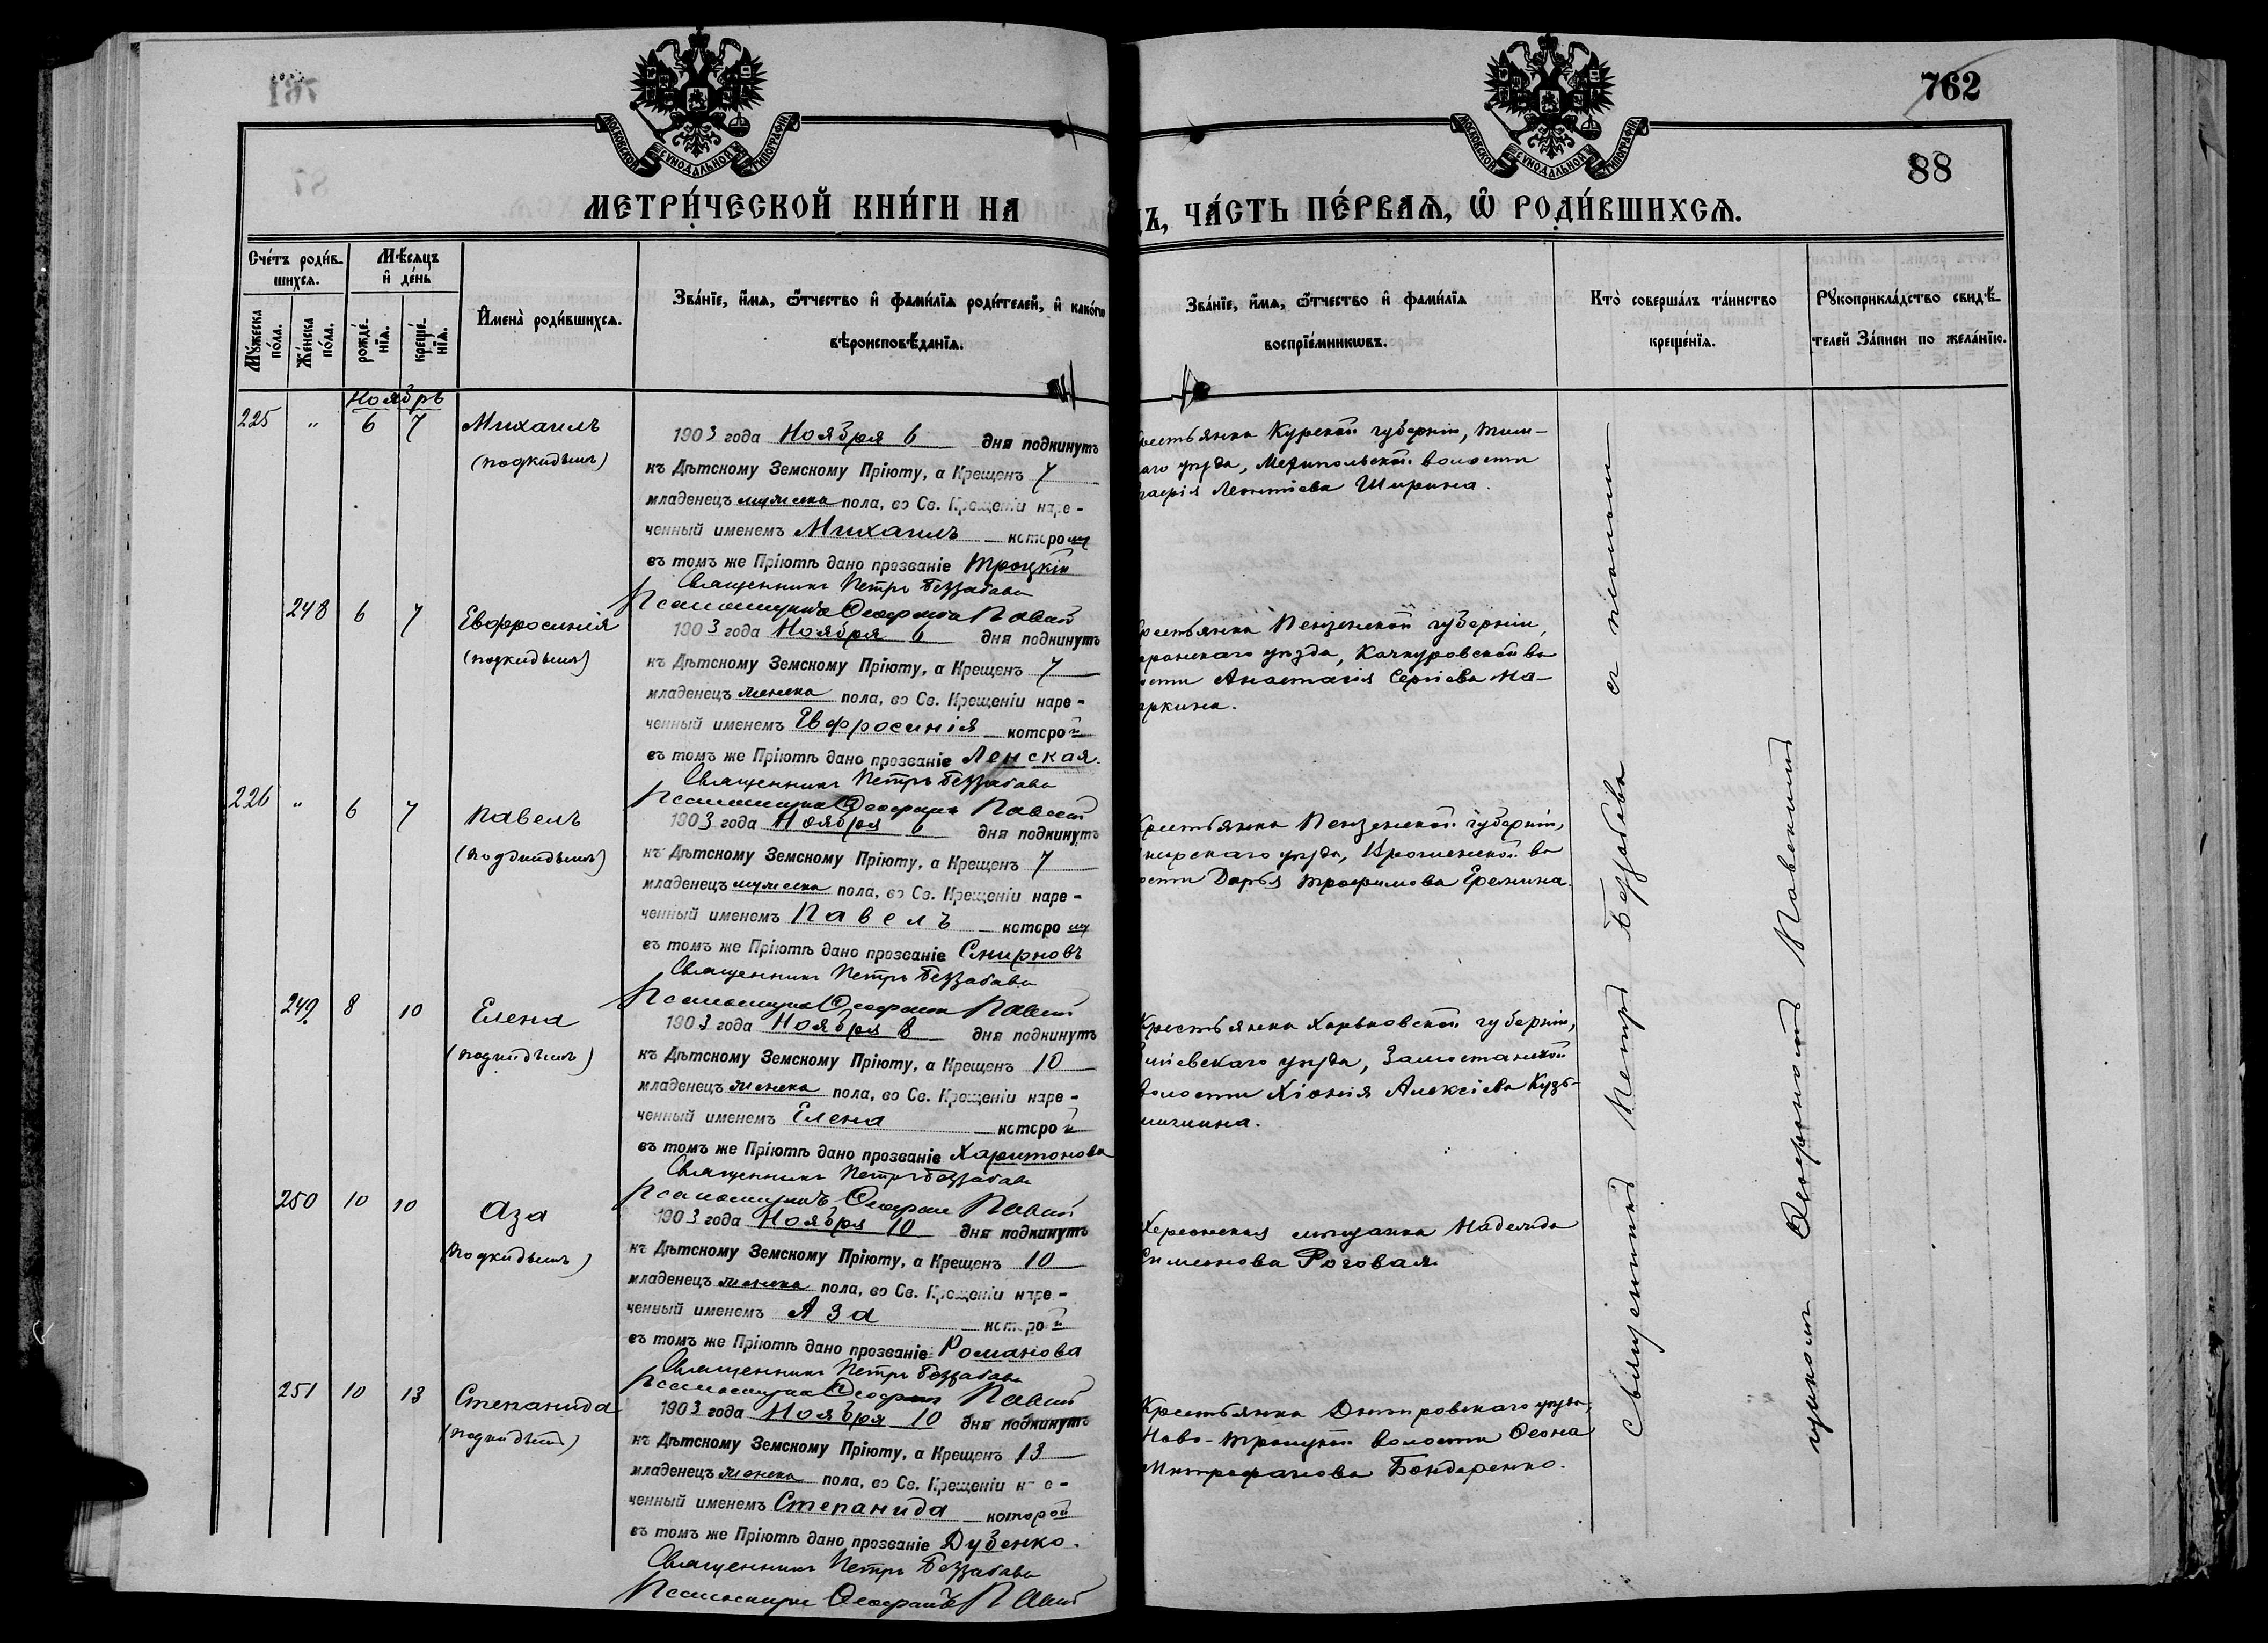 762
88
МОСКОВСКОЙ СѴНОДАЛЬНОЙ ТИПОГРАФІИ
МОСКОВСКОЙ СѴНОДАЛЬНОЙ ТИПОГРАФІИ
МЕТРИ́ЧЕСКОЙ КНИ́ГИ НА
ДЪ, ЧА́СТЬ ПЕ́РВАѦ, Ѡ҆ РОДИ́ВШИХСѦ.
Сче́тъ роди́в-
шихсѧ.
Мꙋ́жеска по́ла.
Же́нска по́ла.
Мѣ́сѧцъ
и҆ де́нь
рожде́-
нїѧ.
креще́-
нїѧ.
И҆мена̀ роди́вшихсѧ.
Зва́нїе, и҆́мѧ, ѻ҆́тчество и҆ фами́лїѧ роди́телей, и҆ како́гѡ
вѣроисповѣ́данїѧ.
Зва́нїе, и҆́мѧ, ѻ҆́тчество и҆ фами́лїѧ
воспрїе́мникѡвъ.
Кто̀ соверша́лъ та́инство
креще́нїѧ.
Рꙋкоприкла́дство свидѣ́-
телей За́писи по жела́нїю.
Ноябрь
225 " 6 7 Михаилъ
(подкидышъ)
1903 года Ноября 6 дня подкинутъ
къ Дѣтскому Земскому Пріюту, а Крещенъ 7
младенецъ мужеска пола, во Св. Крещеніи наре-
ченный именемъ Михаилъ которому
въ томъ же Пріютѣ дано прозваніе Троцкій
Священникъ Петръ Беззабава
Псаломщикъ Ѳеофанъ Павскій
Курской губерніи, Тим-
аго уѣзда, волости
Леонтіева Ширина.
248 6 7 Евфросинія
(подкидышъ)
1903 года Ноября 6 дня подкинутъ
къ Дѣтскому Земскому Пріюту, а Крещенъ 7
младенецъ женска пола, во Св. Крещеніи наре-
ченный именемъ Евфросинія которой
въ томъ же Пріютѣ дано прозваніе Ленская.
Священникъ Петръ Беззабава
Псаломщикъ Ѳеофанъ Павскій
рестьянка Пензенской губерніи,
аранскаго уѣзда, Качкуровской во
ости Анастасія Сергіева Ма-
ркина.
226 " 6 7 Павелъ
(подкидышъ)
1903 года Ноября 6 дня подкинутъ
къ Дѣтскому Земскому Пріюту, а Крещенъ 7
младенецъ мужеска пола, во Св. Крещеніи наре-
ченный именемъ Павелъ которому
въ томъ же Пріютѣ дано прозваніе Смирновъ
Священникъ Петръ Беззабава
Псаломщикъ Ѳеофанъ Павскій
Крестьянка Пензенской губерніи,
уѣзда, во
ости Дарья Трофимова Еремина.
249. 8 10 Елена
(подкидышъ)
1903 года Ноября 8 дня подкинутъ
къ Дѣтскому Земскому Пріюту, а Крещенъ 10
младенецъ женска пола, во Св. Крещеніи наре-
ченный именемъ Елена которой
въ томъ же Пріютѣ дано прозваніе Харитонова
Священникъ Петръ Беззабава
Псаломщикъ Ѳеофанъ Павскій
Крестьянка Харьковской губерніи,
міевскаго уѣзда, Замостянской
волости Хіонія Алексіева Кузь-
мичина.
250 10 10 Аза
(подкидышъ)
1903 года Ноября 10 дня подкинутъ
къ Дѣтскому Земскому Пріюту, а Крещенъ 10
младенецъ женска пола, во Св. Крещеніи наре-
ченный именемъ Аза которой
въ томъ же Пріютѣ дано прозваніе Романова
Священникъ Петръ Беззабава
Псаломщикъ Ѳеофанъ Павскій
Херсонская мѣщанка Надежда
Симеонова Роговая
251 10 13 Степанида
(подкидышъ)
1903 года Ноября 10 дня подкинутъ
къ Дѣтскому Земскому Пріюту, а Крещенъ 13
младенецъ женска пола, во Св. Крещеніи наре-
ченный именемъ Степанида которой
въ томъ же Пріютѣ дано прозваніе Дубенко.
Священникъ Петръ Беззабава
Псаломщикъ Ѳеофанъ Павскій
Крестьянка Днѣпровскаго уѣзда,
Ново-Троицкой волости Ѳеона
Митрофанова Бондаренко.
Священникъ Петръ Беззабава съ псалом-
щикомъ Ѳеофаномъ Павскимъ